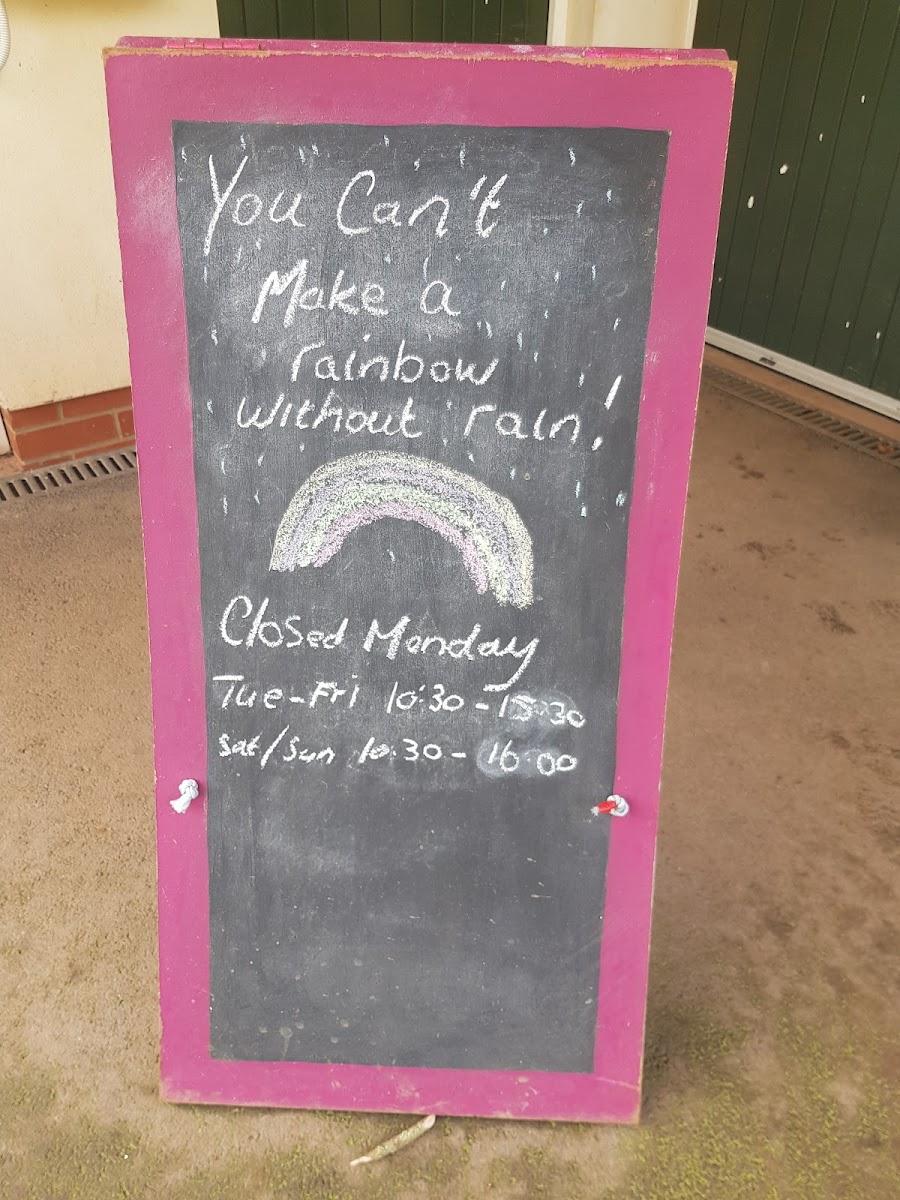 You Can't
Make a
rainbow
without rain!
Closed Monday
Tue-Fri 10:30-15:30
Sat/Sun 10:30-16:00